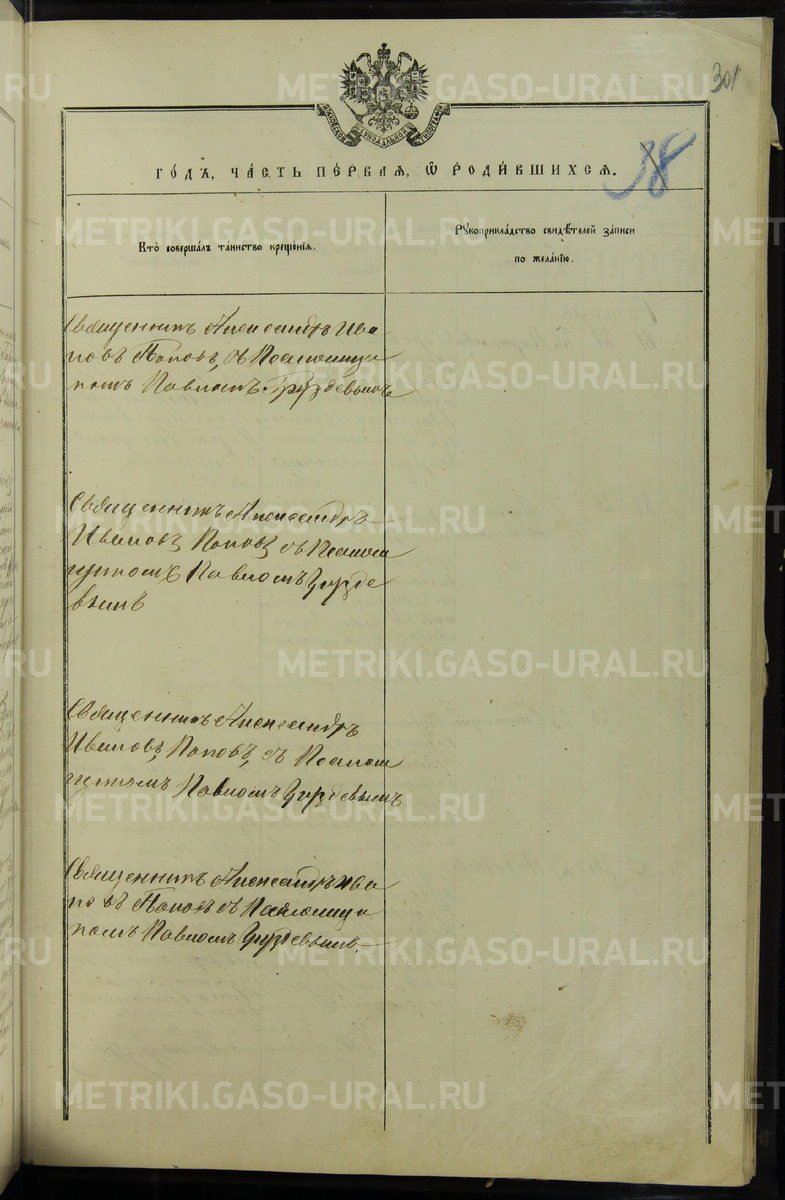 301
МОСКОВСКОЙ СѴНОДАЛЬНОЙ ТИПОГРАФІИ
38
ГО́ДЪ, ЧА́СТЬ ПЕ́РВАѦ, Ѽ РОДИ́ВШИХСѦ.
Кто̀ соверша́лъ та́инство креще́нїѧ.
Рꙋкоприкла́дство свидѣ́телей за́писи
по жела́нїю.
Священникъ Александръ Ива
новъ Поповъ, съ Псаломщи
комъ Павломъ Груздевымъ
Священникъ Александръ
Ивановъ Поповъ съ Псалом
щикомъ Павломъ Грузде
вымъ
Священникъ Александръ
Ивановъ Поповъ, съ Псалом
щикомъ Павломъ Груздевымъ
Священникъ Александръ Ива
новъ Поповъ съ Псаломщи
комъ Павломъ Груздевымъ
METRIKI.GASO-URAL.RU